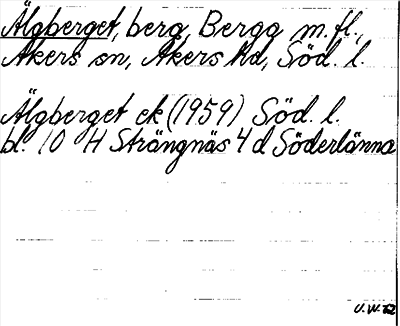 Älgberget, berg, Bergg m.fl.,
Åkers sn, Åkers hd, Söd. l.
Älgberget ek (1959) Söd. l.
bl. 10 H Strängnäs 4 d Söderlänna
U.W. 72